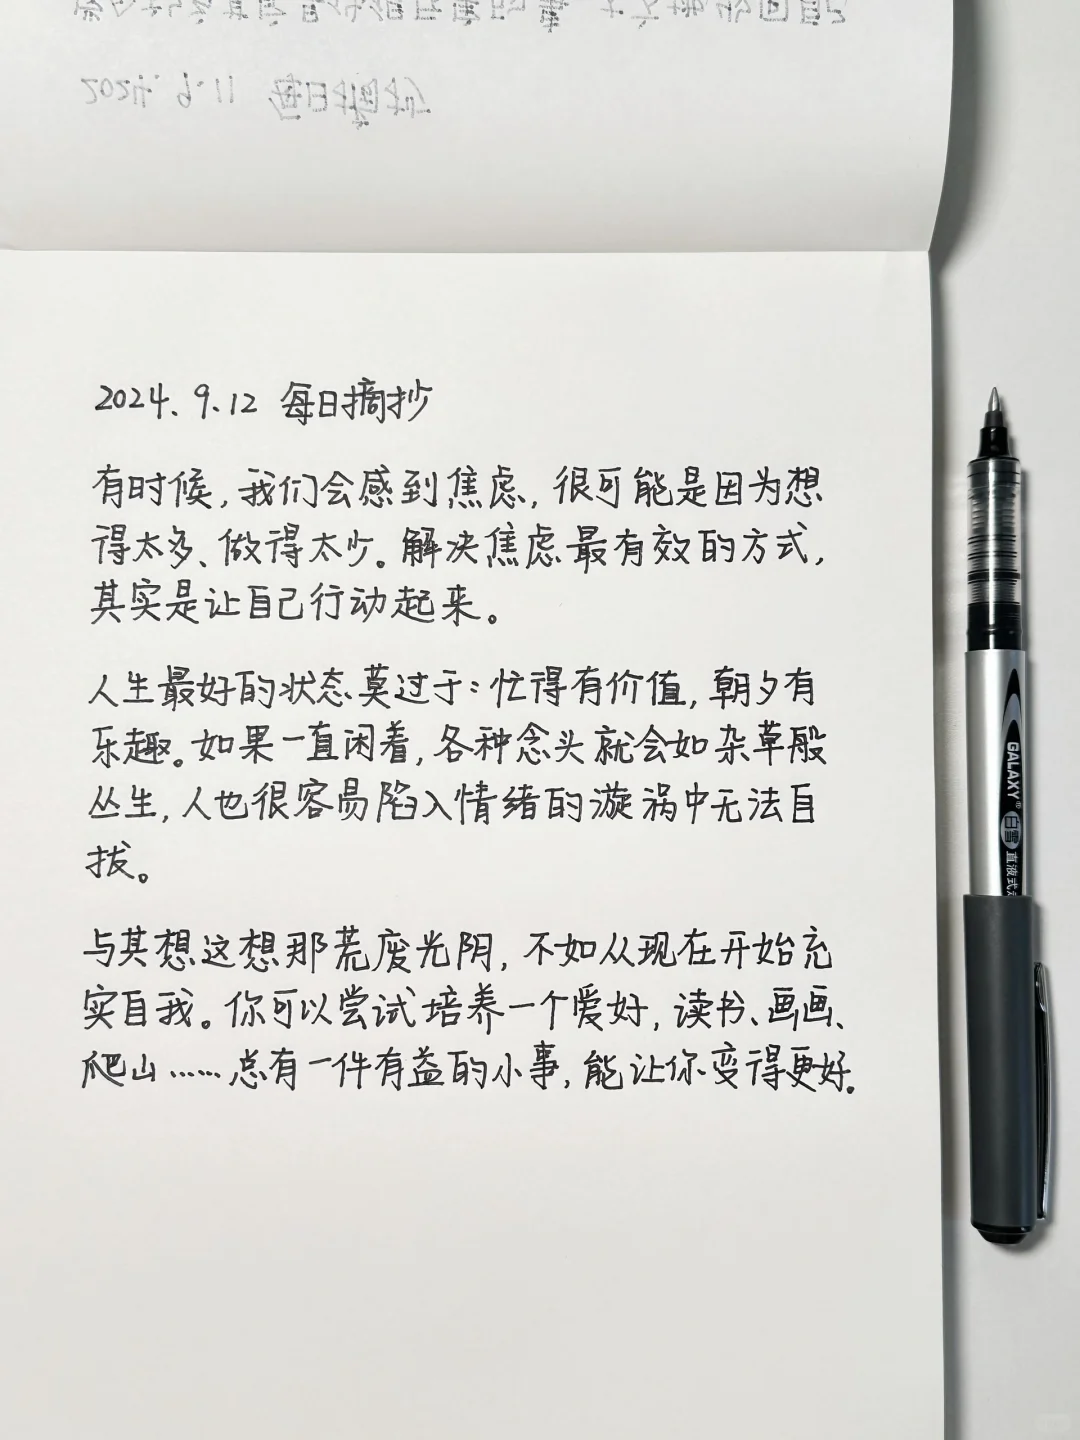 2024.9.11 每日摘抄
2024.9.12 每日摘抄
有时候,我们会感到焦虑,很可能是因为想
得太多、做得太少。解决焦虑最有效的方式,
其实是让自己行动起来。
人生最好的状态莫过于:忙得有价值,朝夕有
乐趣。如果一直闲着,各种念头就会如杂草般
丛生,人也很容易陷入情绪的漩涡中无法自
拔。
与其想这想那荒废光阴,不如从现在开始充
实自我。你可以尝试培养一个爱好,读书、画画、
爬山……总有一件有益的小事,能让你变得更好。
GALAXY®
白雪 直液式